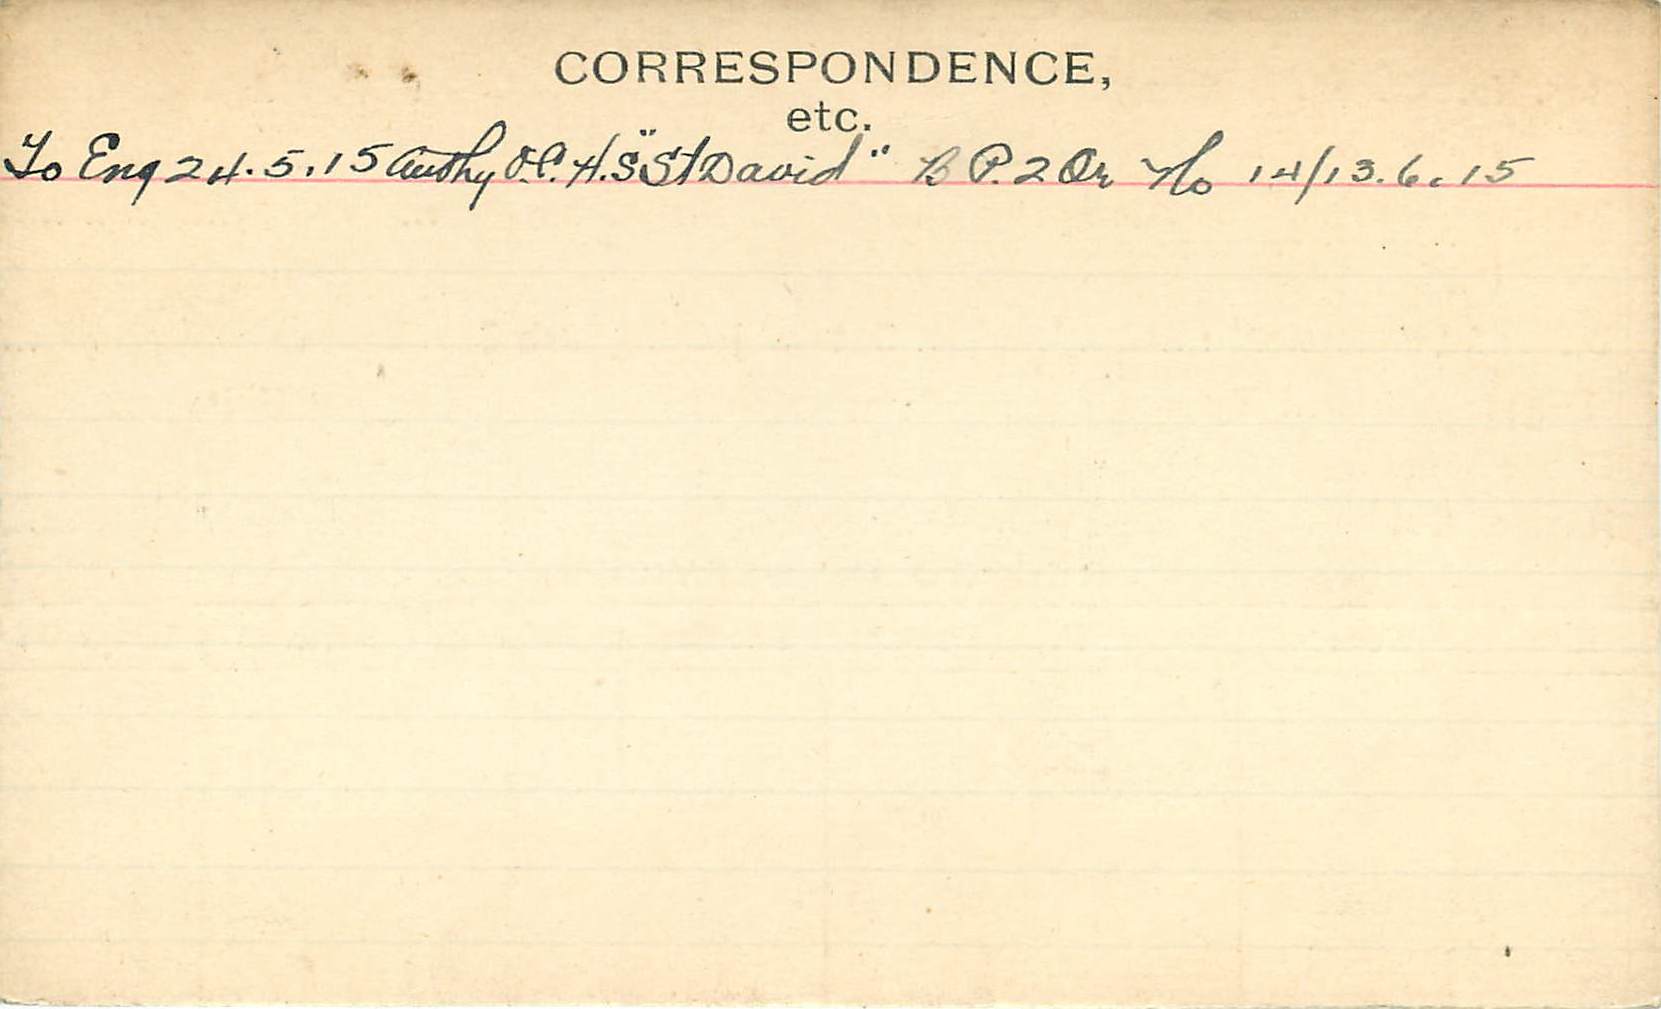 CORRESPONDENCE,
etc.
To Eng 24.5.15 Authy O.C. H.S "St David" B P. 2 Or No 14/13.6.15